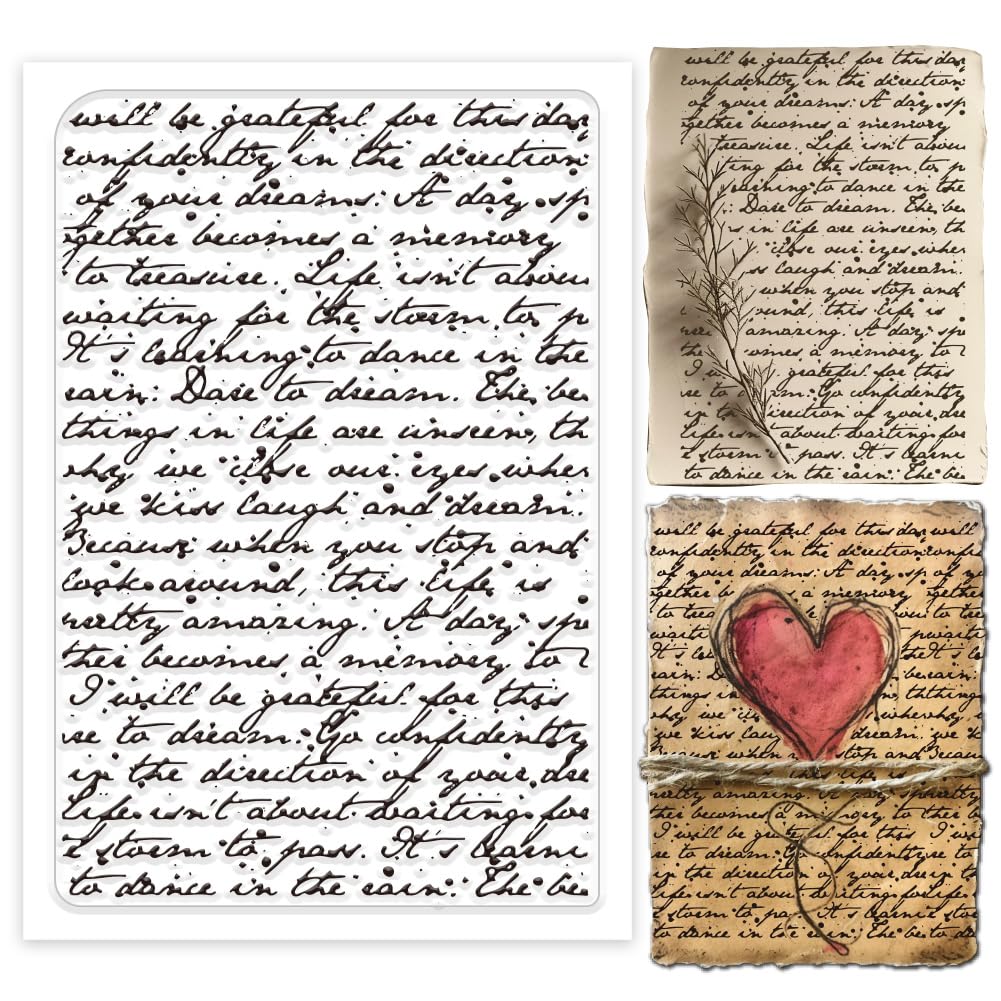 will be grateful for this day
confidently in the direction
of your dreams. A day sp
ogether becomes a memory
to treasure. Life isn't abou
waiting for the storm to p
It's learning to dance in the
rain. Dare to dream. The be
things in life are unseen, th
why we close our eyes when
we kiss laugh and dream.
Because when you stop and
look around, this life is
retty amazing. A day sp
ther becomes a memory to
I will be grateful for this
re to dream. Go confidently
in the direction of your dre
life isn't about waiting for
e storm to pass. It's learni
to dance in the rain. The be
will be grateful for this day
confidently in the direction
of your dreams. A day sp
ogether becomes a memory
treasure. Life isn't abou
ting for the storm to p
learning to dance in the
Dare to dream. The be
s in life are unseen, th
close our eyes when
ss laugh and dream.
when you stop and
ound, this life is
amazing. A day sp
the omes a memory to
I w grateful for this
re to m. Go confidently
in th irection of your dre
life isn about waiting for
e storm pass. It's learni
to dance in the rain. The be
will be grateful for this day will
confidently in the direction confi
of your dreams. A day sp of yo
a memory ogether
Because when stop and Becau
this life is
retty amazing. A day sp retty
I will be grateful for this I wi
re to dream. Go confidently re to
in the direction of your dre in th
life isn't about waiting for life
e storm to pa It's learni e sto
to dance in t e rain. The be to dan